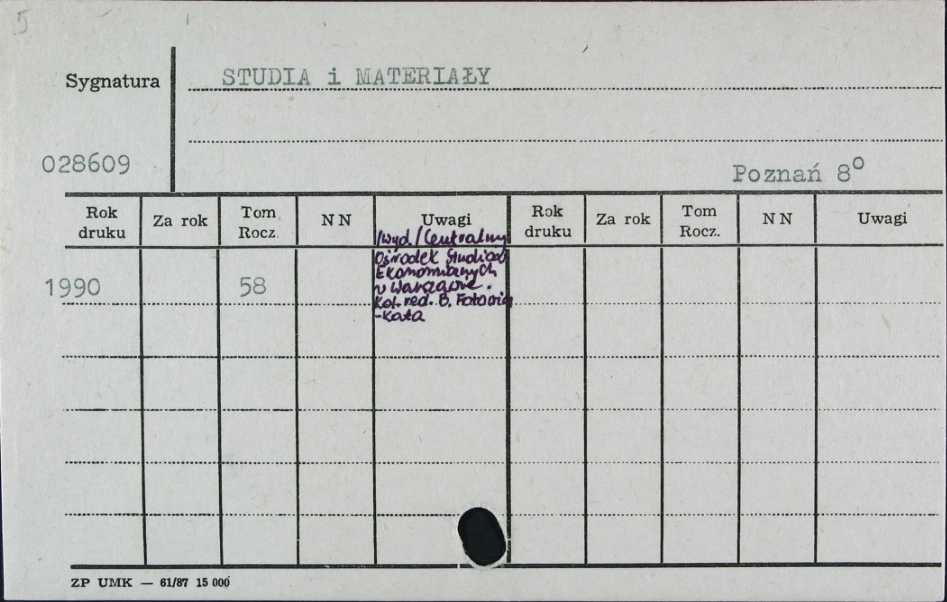 5
Sygnatura
STUDIA i MATERIAŁY
028609
Poznań 8º
Rok druku Za rok Tom Rocz. N N Uwagi Rok druku Za rok Tom Rocz. N N Uwagi
/Wyd/Centralny
Ośrodek Studiów
Ekonomicznych
1990 58
w Warszawie.
Kol. red. B.
-Kała
ZP UMK — 61/87 15 000